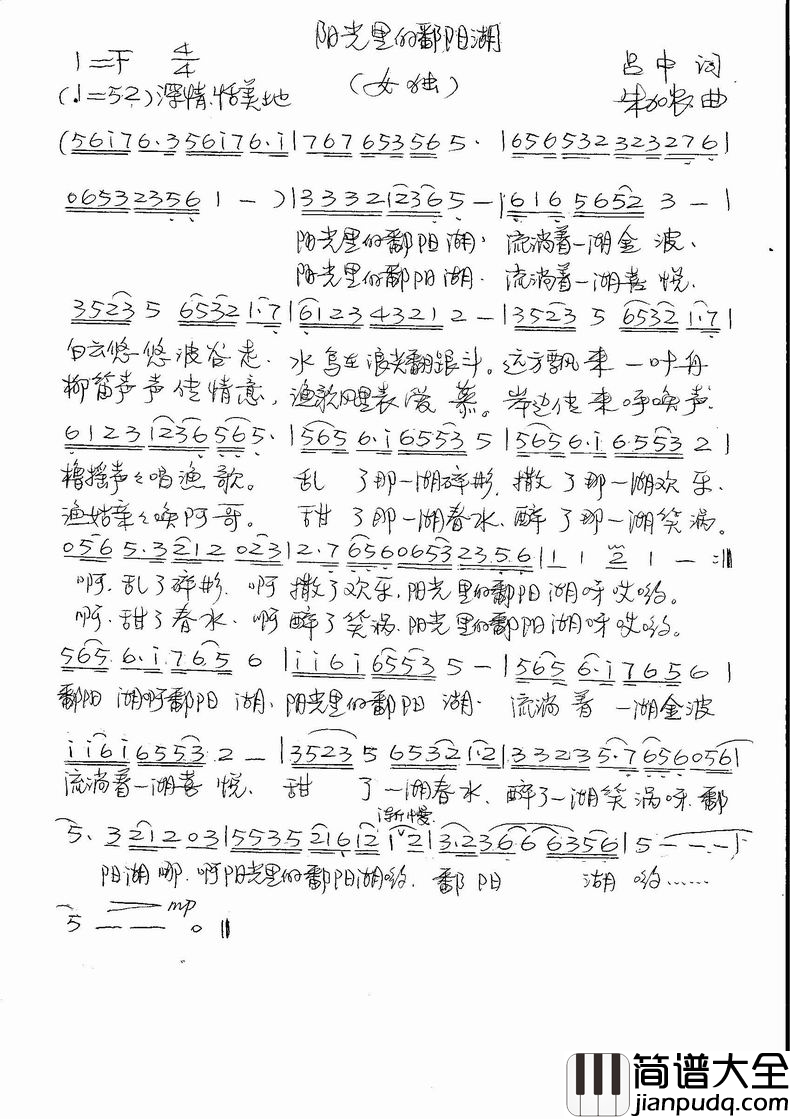 阳光里的鄱阳湖
1=F 4/4
(女独)
吕中词
(♩=52)深情.恬美地
朱加农曲
(56i76·356i76·i|767653565·|656532323276|
06532356 1 -)|33321236 5 -|6165652 3 -|
阳光里的鄱阳湖. 流淌着一湖金波、
阳光里的鄱阳湖. 流淌着一湖喜悦.
3523 5 6532 1·7|61234321 2 -|3523 5 6532 1·7|
白云悠悠波谷走. 水鸟在浪尖翻跟斗。远方飘来一叶舟
柳笛声声传情意, 渔歌风里表爱慕。岸边传来呼唤声.
6123 1236565·|5656·i6553 5|5656·i6·553 2|
橹摇声々唱渔歌。 乱了那一湖碎影, 撒了那一湖欢乐.
渔姑亲々唤阿哥。 甜了那一湖春水.醉了那一湖笑涡。
0565·3212 023|2·76560653 23·5·6|1 1 2 1 -:‖
啊.乱了碎影. 啊撒了欢乐.阳光里的鄱阳湖呀哎哟。
啊.甜了春水.啊醉了笑涡.阳光里的鄱阳湖呀哎哟。
565·6·i·76·5 6|ii6i6553 5 -|5656·i7656|
鄱阳湖啊鄱阳湖、阳光里的鄱阳湖. 流淌着一湖金波
ii6i6553·2 -|3523 5 6532 1·2|33235·7656056|
流淌着一湖喜悦. 甜了一湖春水.醉了一湖笑涡呀.鄱
渐慢
5·321203|5535216 12 i2|3·236·66356|5---|
阳湖哪.啊阳光里的鄱阳湖哟.鄱阳湖哟……
mp
5 — — 0‖
简谱大全
jianpudq.com